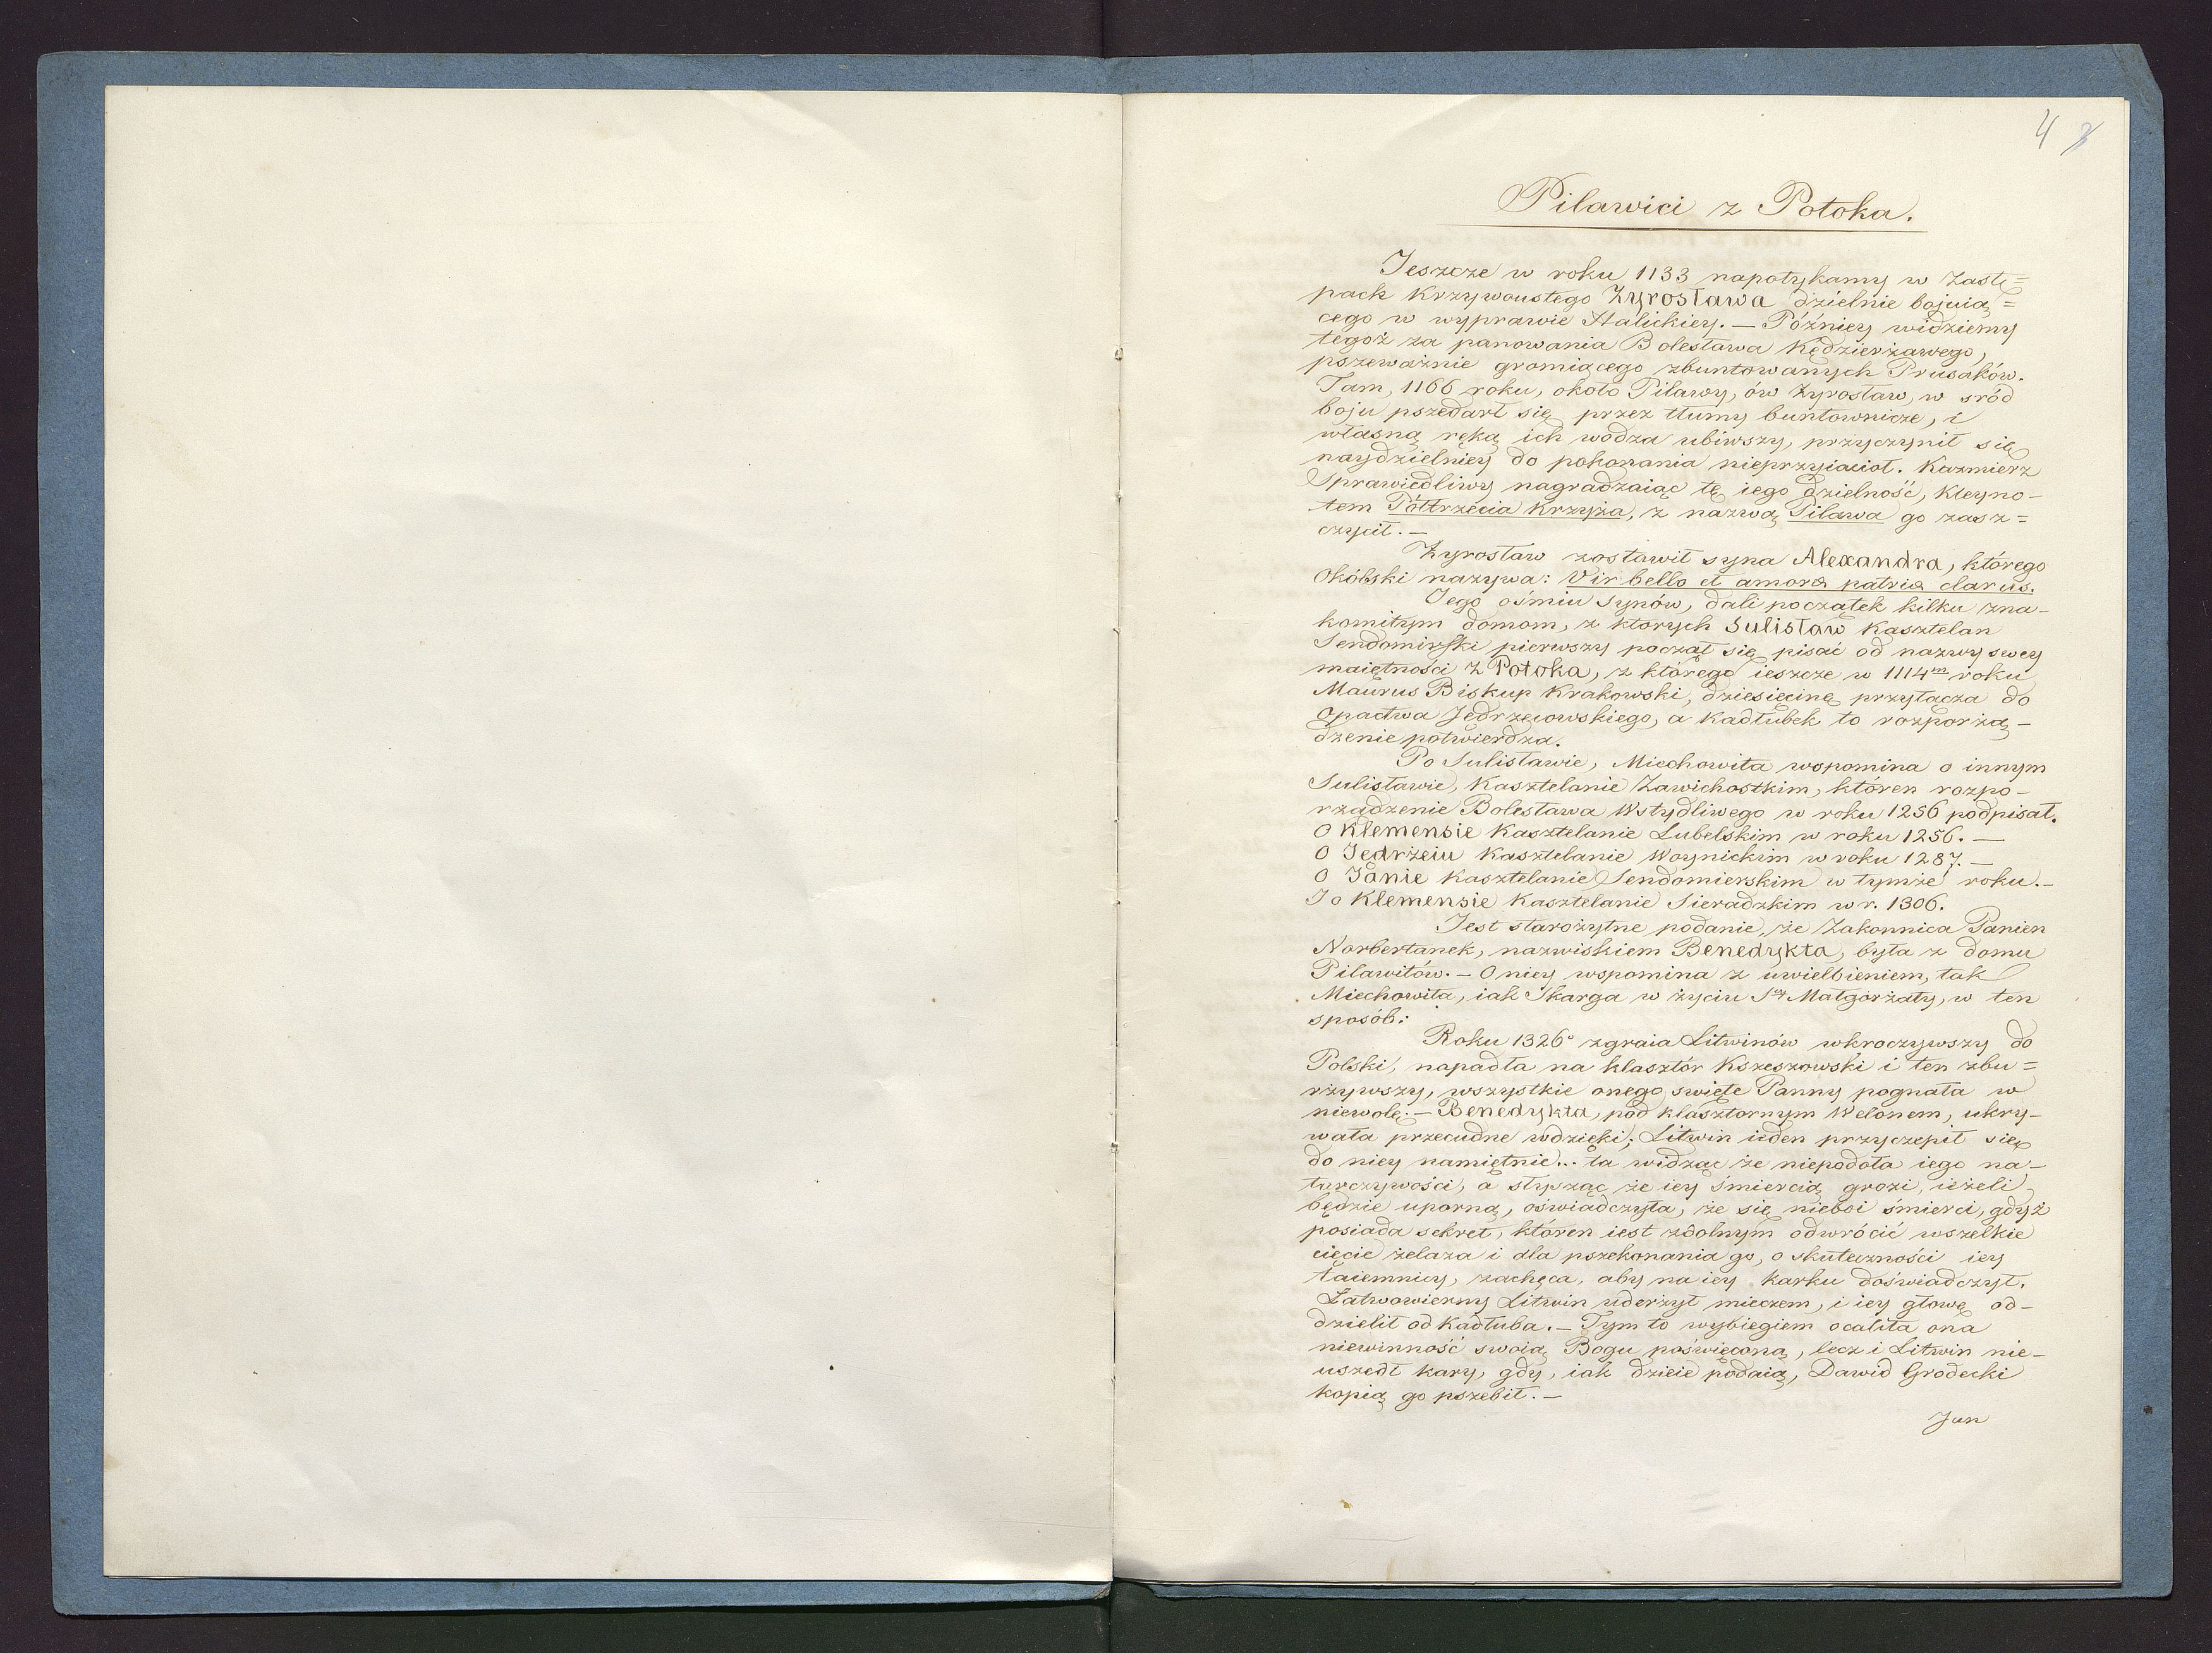 4
Pilawici z Potoka.
Jeszcze w roku 1133 napotykamy w Zastę=
pach Krzywoustego Żyrosława dzielnie bojuią=
cego w wyprawie Halickiey. — Późniey widziemy
tegoż za panowania Bolesława Kędzierżawego,
pszeważnie gromiącego zbuntowanych Prusaków.
Tam, 1166 roku, około Pilawy, ów Żyrosław, w sród
boju pszedarł się przez tłumy buntownicze, i
własną ręką ich wodza ubiwszy, przyczynił się
naydzielniey do pokonania nieprzyiacioł. Kazmierz
Sprawiedliwy nagradzaiąc tę iego dzielność, Kleyno-
tem Półtrzecia Krzyża, z nazwą Pilawa go zasz=
czycił. —
Żyrosław zostawił syna Alexandra, którego
Okólski nazywa: Vir bello et amore patriæ clarus.
Jego ośmiu Synów, dali początek kilku zna-
komitym domom, z ktorych Sulisław Kasztelan
Sendomirski pierwszy począł się pisać od nazwy swey
maiętności z Potoka, z którego ieszcze w 1114m roku
Maurus Biskup Krakowski, dziesięcinę przyłącza do
Opactwa Jędrzeiowskiego, a Kadłubek to rozporżą-
dzenie potwierdza.
Po Sulisławie, Miechowita wspomina o innym
Sulisławie, Kasztelanie Zawichostkim, któren rozpo-
rządzenie Bolesława Wstydliwego w roku 1256 podpisał.
O Klemensie Kasztelanie Lubelskim w roku 1256. —
O Jedrżeiu Kasztelanie Woynickim w roku 1287. —
O Janie Kasztelanie Sendomierskim w tymże roku. —
I o Klemensie Kasztelanie Sieradzkim w r. 1306.
Jest starożytne podanie, że Zakonnica Panien
Norbertanek, nazwiskiem Benedykta, była z domu
Pilawitów. — O niey wspomina z uwielbieniem, tak
Miechowita, iak Skarga w życiu Stey Małgorżaty, w ten
sposób:
Roku 1326o zgraia Litwinów wkroczywszy do
Polski, napadła na klasztór Kszeszowski i ten zbu=
rzywszy, wszystkie onego swięte Panny pognała w
niewolę. — Benedykta, pod klasztornym Welonem, ukry-
wała przecudne wdzięki; Litwin ieden przyczepił się
do niey namiętnie... ta widząc że niepodoła iego na-
tarczywości, a słysząc że iey śmiercią grozi, ieżeli
będzie uporną, oświadczyła, że się nieboi śmierci, gdyż
posiada sekret, któren iest zdolnym odwrócić wszelkie
cięcie żelaza i dla pszekonania go, o skuteczności iey
taiemnicy, zachęca, aby na iey karku doświadczył.
Łatwowierny Litwin uderżył mieczem, i iey głowę od-
dzielił od Kadłuba. — Tym to wybiegiem ocaliła ona
niewinność swoią Bogu poświęconą, lecz i Litwin nie-
uszedł kary, gdy, iak dzieie podaią, Dawid Grodecki
kopią go pszebił. —
Jan